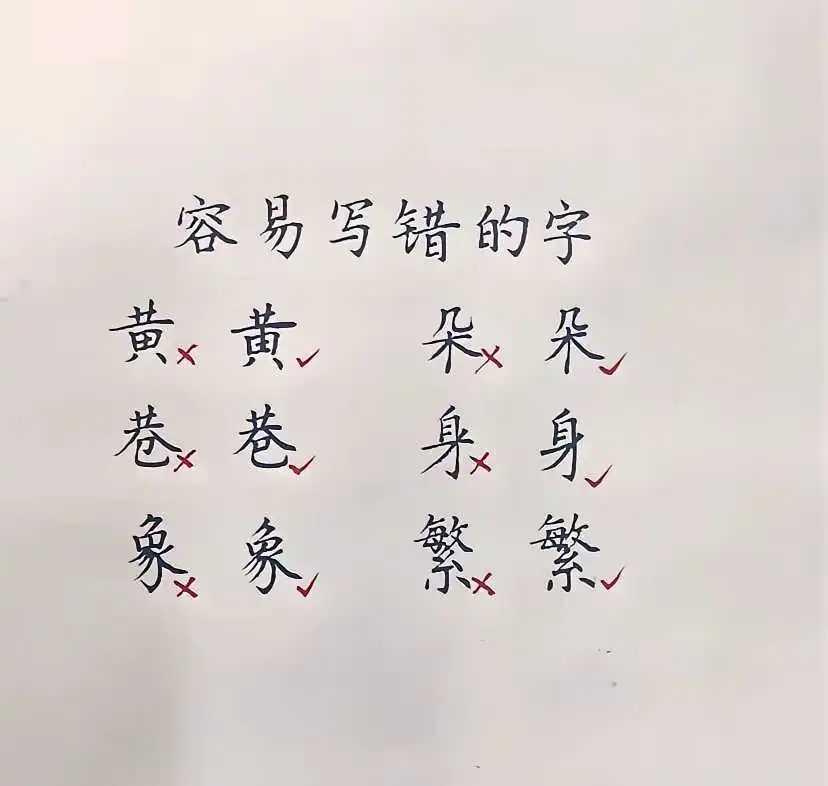 容易写错的字
黄× 黄✓ 朵× 朵✓
巷× 巷✓ 身× 身✓
象× 象✓ 繁× 繁✓